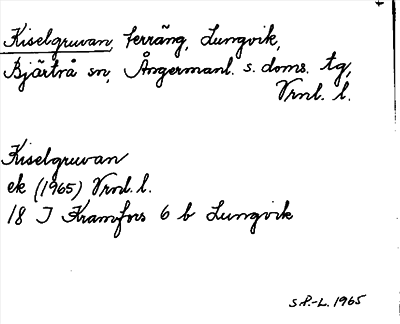 Kiselgruvan, terräng, Lungvik,
Bjärtrå sn, Ångermanl. s. doms. tg,
Vrnl. l.
Kiselgruvan
ek (1965) Vrnl. l.
18 J Kramfors 6 b Lungvik
S.P.-L. 1965